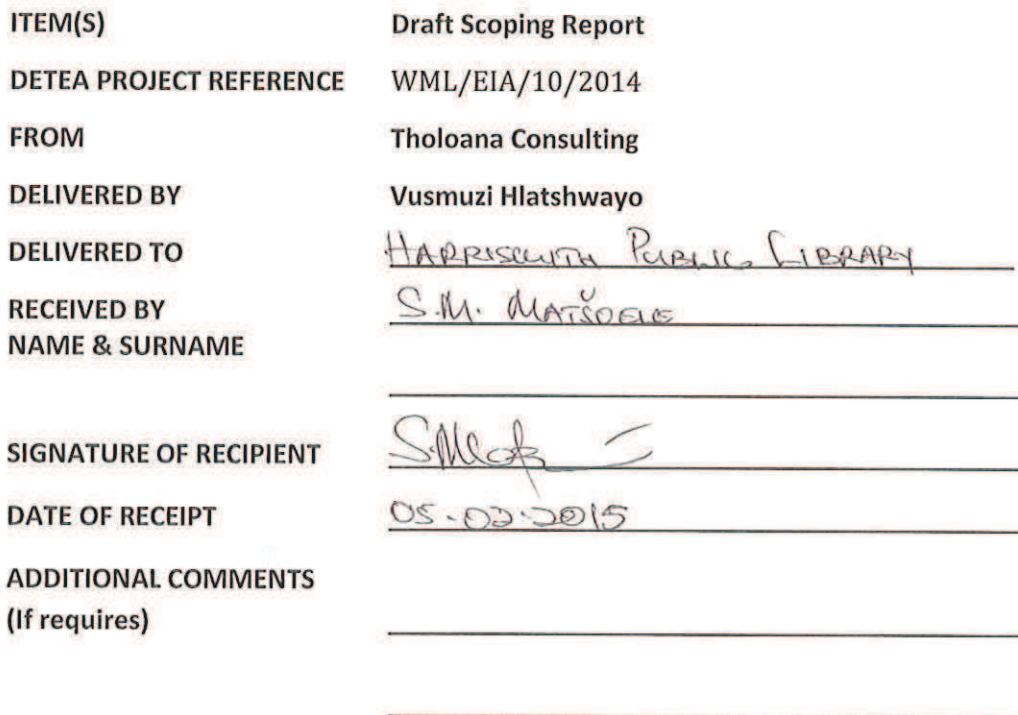 ITEM(S) Draft Scoping Report
DETEA PROJECT REFERENCE WML/EIA/10/2014
FROM Tholoana Consulting
DELIVERED BY Vusmuzi Hlatshwayo
DELIVERED TO HARRISMITH PUBLIC LIBRARY
RECEIVED BY S.M.
NAME & SURNAME
SIGNATURE OF RECIPIENT
DATE OF RECEIPT 05-02-2015
ADDITIONAL COMMENTS
(If requires)